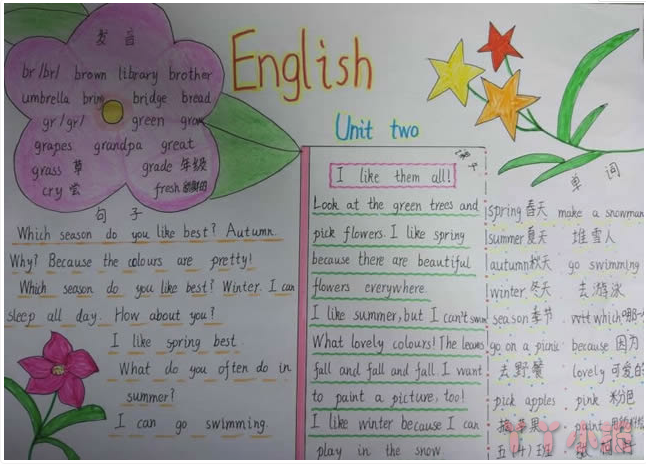 English
Unit two
发音
br /br/ brown library brother
umbrella bridge bread
gr /gr/ green grow
grapes grandpa great
grass 草 grade 年级
cry 尝 fresh 新鲜的
句子
Which season do you like best? Autumn.
Why? Because the colours are pretty!
Which season do you like best? Winter. I can
sleep all day. How about you?
I like spring best.
What do you often do in
summer?
I can go swimming.
I like them all!
Look at the green trees and
pick flowers. I like spring
because there are beautiful
flowers everywhere.
I like summer, but I can't swim
What lovely colours! The leaves
fall and fall and fall. I want
to paint a picture, too!
I like winter because I can
play in the snow.
单词
spring 春天 make a snowman
summer 夏天 堆雪人
autumn 秋天 go swimming
winter 冬天 去游泳
season 季节 which 哪一
go on a picnic because 因为
去野餐 lovely 可爱的
pick apples pink 粉色
摘苹果 paint
五(十)班